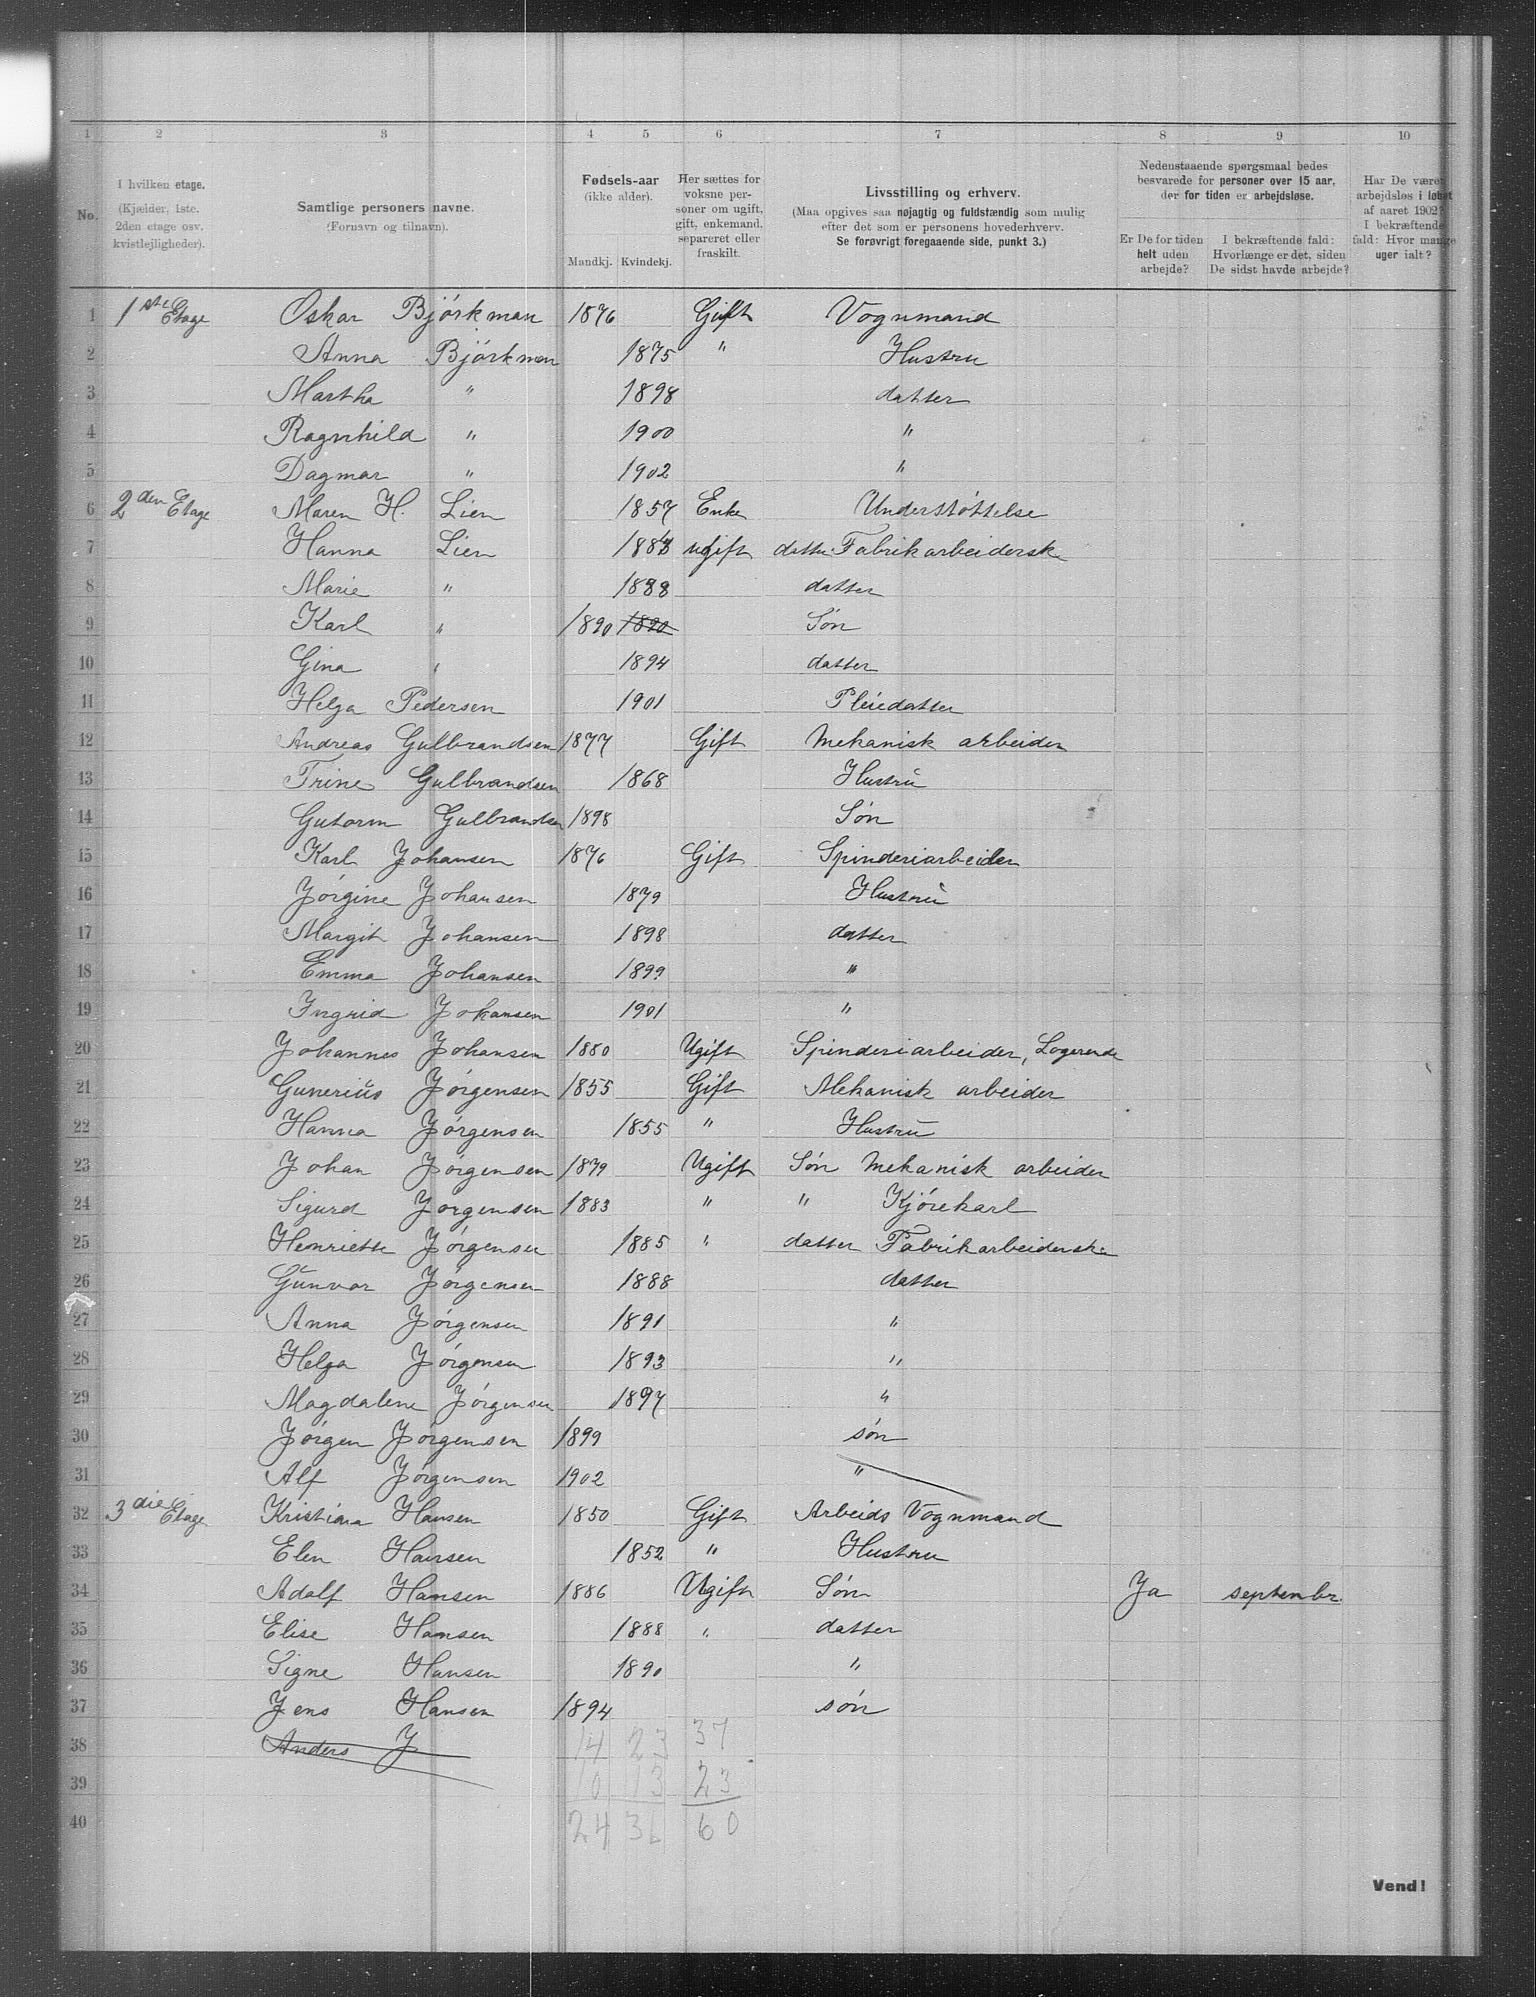 1 2 3 4 5 6 7 8 9 10
No.
I hvilken etage.
(Kjælder, 1ste.
2den etage osv.
kvistlejligheder).
Samtlige personers navne.
(Fornavn og tilnavn).
Fødsels-aar
(ikke alder).
Mandkj. Kvindekj.
Her sættes for
voksne per-
soner om ugift,
gift, enkemand,
separeret eller
fraskilt.
Livsstilling og erhverv.
(Maa opgives saa nøjagtig og fuldstændig som mulig
efter det som er personens hovederhverv.
Se forøvrigt foregaaende side, punkt 3.)
Nedenstaaende spørgsmaal bedes
besvarede for personer over 15 aar,
der for tiden er arbejdsløse.
Er De for tiden
helt uden
arbejde?
I bekræftende fald:
Hvorlænge er det, siden
De sidst havde arbejde?
Har De været
arbejdsløs i løbet
af aaret 1902?
I bekræftende
fald: Hvor mange
uger ialt?
1 1ste Etage Oskar Bjórkman 1876 Gift Vognmand
2 Anna Bjórkman 1875 " Hustru
3 Martha " 1898 datter
4 Ragnhild " 1900 "
5 Dagmar " 1902 "
6 2den Etage Maren H. Lien 1857 Enke Understóttelse
7 Hanna Lien 1883 ugift datter Fabrikarbeidersk
8 Marie " 1888 datter
9 Karl " 1890 1890 Són
10 Gina " 1894 datter
11 Helga Pedersen 1901 Pleiedatter
12 Andreas Gulbrandsen 1877 Gift Mekanisk arbeider
13 Trine Gulbrandsen 1868 Hustru
14 Gutorm Gulbrandsen 1898 Són
15 Karl Johansen 1876 Gift Spinderiarbeider
16 Jórgine Johansen 1879 Hustru
17 Margit Johansen 1898 datter
18 Emma Johansen 1899 "
19 Ingrid Johansen 1901 "
20 Johannes Johansen 1880 Ugift Spinderiarbeider, Logerende
21 Gunerius Jórgensen 1855 Gift Mekanisk arbeider
22 Hanna Jórgensen 1855 " Hustru
23 Johan Jórgensen 1879 Ugift Són Mekanisk arbeider
24 Sigurd Jorgensen 1883 " " Kjórekarl
25 Henriette Jórgensen 1885 " datter Fabrikarbeiderske
26 Gunvor Jórgensen 1888 datter
27 Anna Jórgensen 1891 "
28 Helga Jórgensen 1893 "
29 Magdalene Jórgensen 1897 "
30 Jórgen Jórgensen 1899 són
31 Alf Jórgensen 1902 "
32 3die Etage Kristiana Hansen 1850 Gift Arbeids Vognmand
33 Elen Hansen 1852 " Hustru
34 Adolf Hansen 1886 Ugift Són Ja septembr.
35 Elise Hansen 1888 " datter
36 Signe Hansen 1890 "
37 Jens Hansen 1894 són
38 Anders J 14 23 37
39 10 13 23
40 24 36 60
Vend!